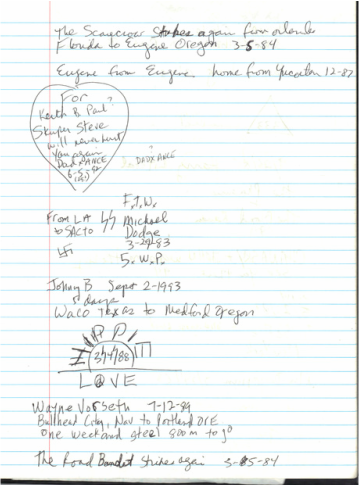 The Scarecrow Strikes again from Orlando
Florida to Eugene Oregon 3-5-84
Eugene from Eugene, home from Yucatan 12-87
For
Keith B Paul?
Skipper Steve
will never hurt
You again
DauxANCE
DAUXANCE
F.T.W.
From LA Michael
to SACTO Dodge
3-29-83
S.W.P.
Johny B Sept 2-1993
5 days
Waco Texas to Medford Oregon
3/4/88
LOVE
Wayne Vorseth 7-12-89
Bullhead City, Nav to Portland ORE
One weekand 900m to go
The Road Bandit Strikes again 3-5-84